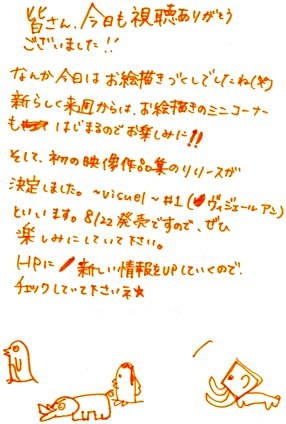 皆さん、今日も視聴ありがとう
ございました!!
なんか今日はお絵描きづくしでしたね(笑)
新らしく来週からは、お絵描きのミニコーナー
も はじまるのでお楽しみに!!
そして、初の映像作品集のリリースが
決定しました。~visuel~#1(ヴィジュール アン)
といいます。8/22発売ですので、ぜひ
楽しみにしていて下さい。
HPに 新しい情報をUPしていくので、
チェックしていて下さいネ★